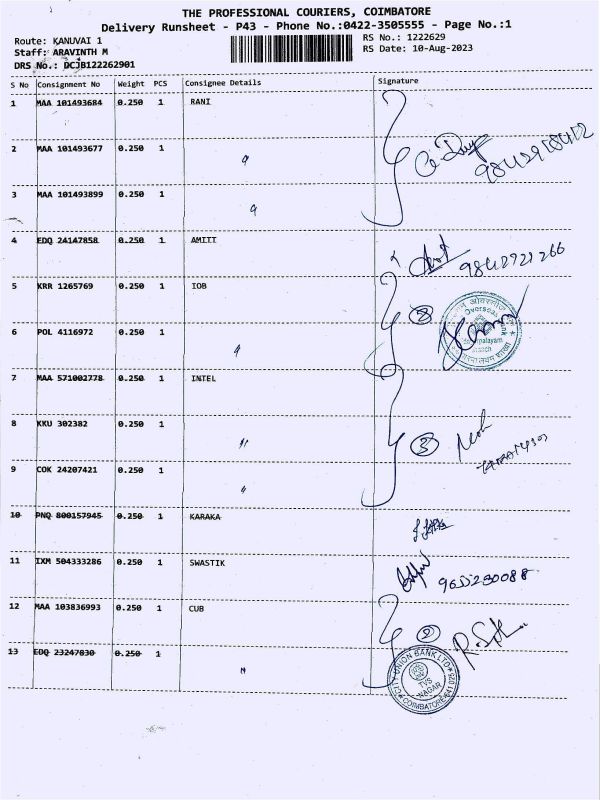 THE PROFESSIONAL COURIERS, COIMBATORE
Delivery Runsheet - P43 - Phone No.:0422-3505555 - Page No.:1
Route: KANUVAI 1
RS No.: 1222629
Staff: ARAVINTH M
RS Date: 10-Aug-2023
DRS No.: DCJB122262901
S No Consignment No Weight PCS Consignee Details Signature
1 MAA 101493684 0.250 1 RANI
2 MAA 101493677 0.250 1 "
3 MAA 101493899 0.250 1 "
4 EDQ 24147858 0.250 1 AMITI
5 KRR 1265769 0.250 1 IOB
6 POL 4116972 0.250 1 "
7 MAA 571002778 0.250 1 INTEL
8 KKU 302382 0.250 1 "
9 COK 24207421 0.250 1 "
10 PNQ 800157945 0.250 1 KARAKA
11 IXM 504333286 0.250 1 SWASTIK
9655230088
12 MAA 103836993 0.250 1 CUB
2
13 EDQ 23247830 0.250 1 "
CITY UNION BANK LTD
TVS
NAGAR
COIMBATORE